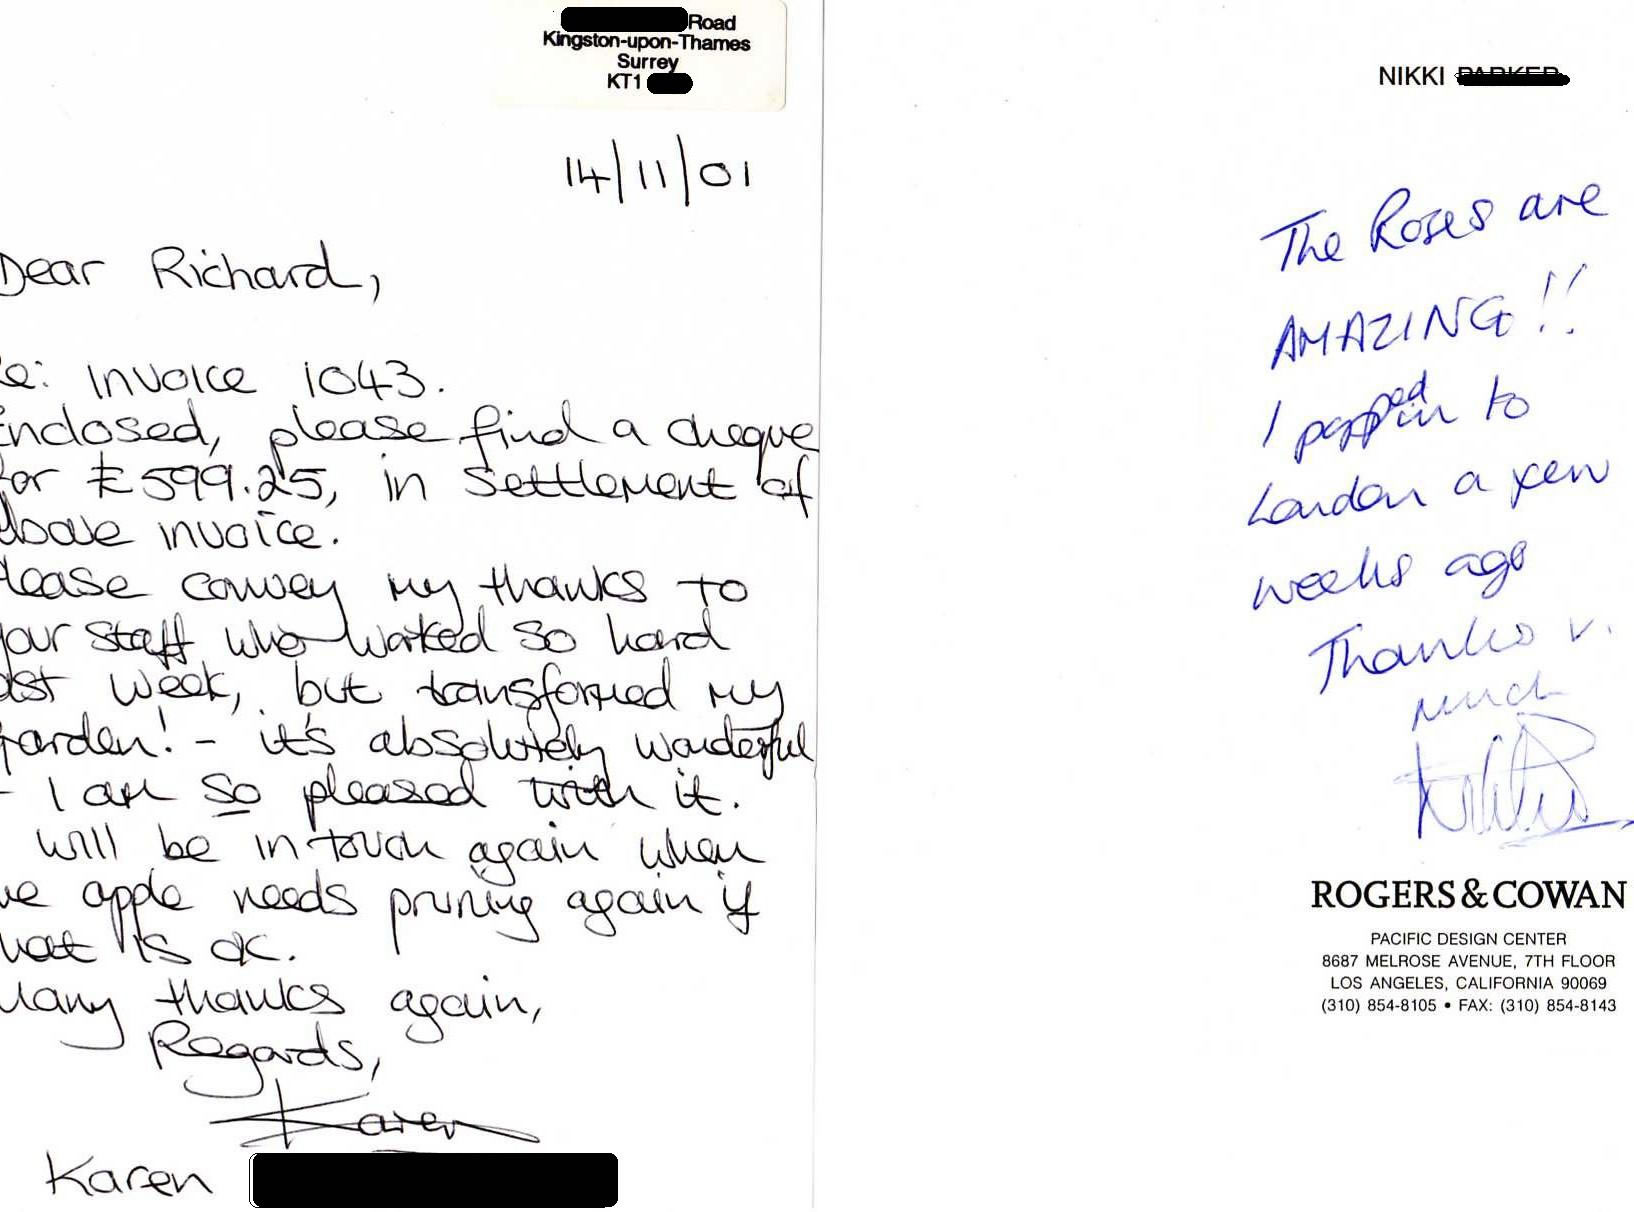 Road
Kingston-upon-Thames
Surrey
KT1
14/11/01
Dear Richard,
Re: Invoice 1043.
Enclosed, please find a cheque
for £599.25, in settlement of
above invoice.
Please convey my thanks to
your staff who worked so hard
last week, but transformed my
garden! - it's absolutely wonderful
- I am so pleased with it.
will be in touch again when
the apple needs pruning again if
that is ok.
Many thanks again,
Regards,
Karen
Karen
NIKKI
The Roses are
AMAZING!!
I popped in to
London a few
weeks ago
Thanks v.
much
ROGERS & COWAN
PACIFIC DESIGN CENTER
8687 MELROSE AVENUE, 7TH FLOOR
LOS ANGELES, CALIFORNIA 90069
(310) 854-8105 • FAX: (310) 854-8143